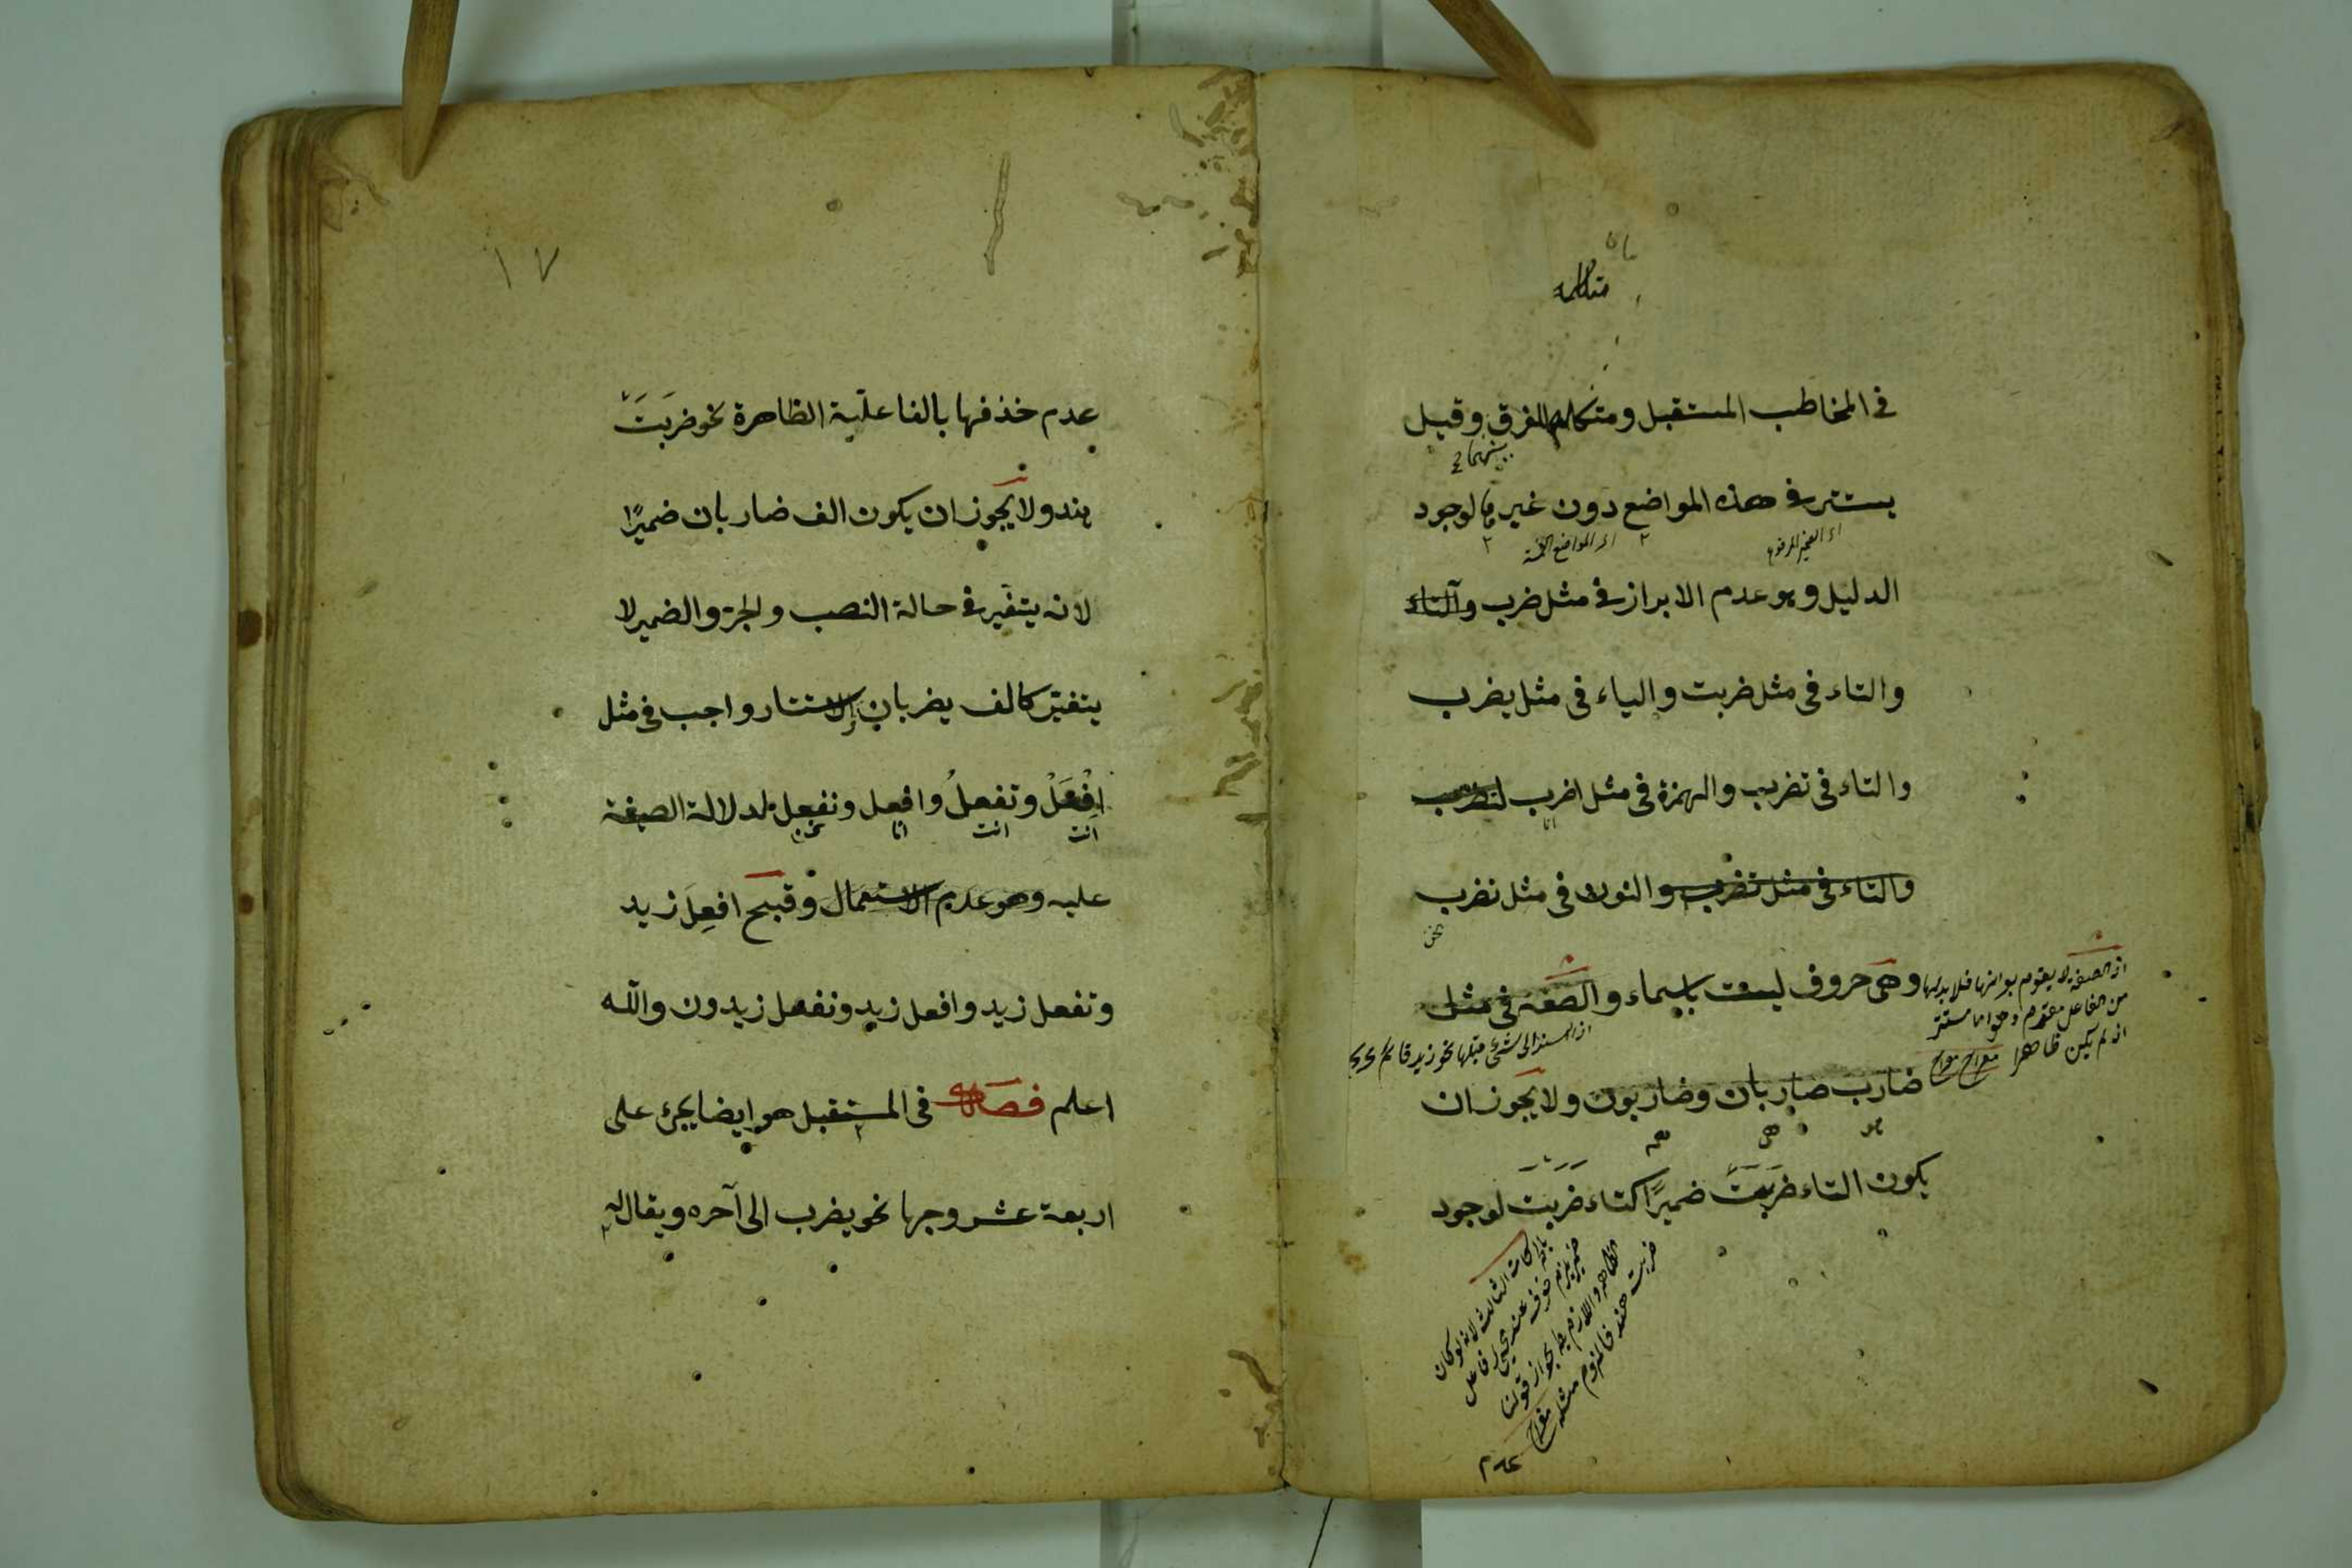 متكلمه
في المخاطب المستقبل ومتكلمه للفرق وقيل
بينهما
يستتر في هذه المواضع دون غيرها لوجود
الدليل وهو عدم الابراز في مثل ضرب والتاء
والتاء في مثل ضربت والياء في مثل يضرب
والتاء في تضرب والهمزة في مثل اضرب
انا
والتاء في مثل تضرب والنون في مثل نضرب
نحن
وهي حروف ليست باسماء والصفة في مثل
اذ الصفة لا يقوم بذاتها فلا بد لها
من الفاعل
اذ لم يكن ظاهرا
ضارب ضاربان وضاربون ولا يجوز ان
هو هما هم
يكون التاء ضربت ضميرًا كتاء ضربت لوجود
ضربت هند
عدم
١٧
عدم حذفها بالفاعلية الظاهرة نحو ضربت
هند ولا يجوز ان يكون الف ضاربان ضميرًا
لانه يتغير في حالة النصب والجر والضمير لا
يتغير كالف يضربان والاستتار واجب في مثل
اِفْعَلْ وتفعلُ وافعل ونفعل لدلالة الصيغة
انت انت انا نحن
عليه وهو عدم الاستعمال وقبح افعل زيد
وتفعل زيد وافعل زيد ونفعل زيدون والله
اعلم فصل في المستقبل هو ايضا يجئ على
اربعة عشر وجها نحو يضرب الى آخره ويقال له